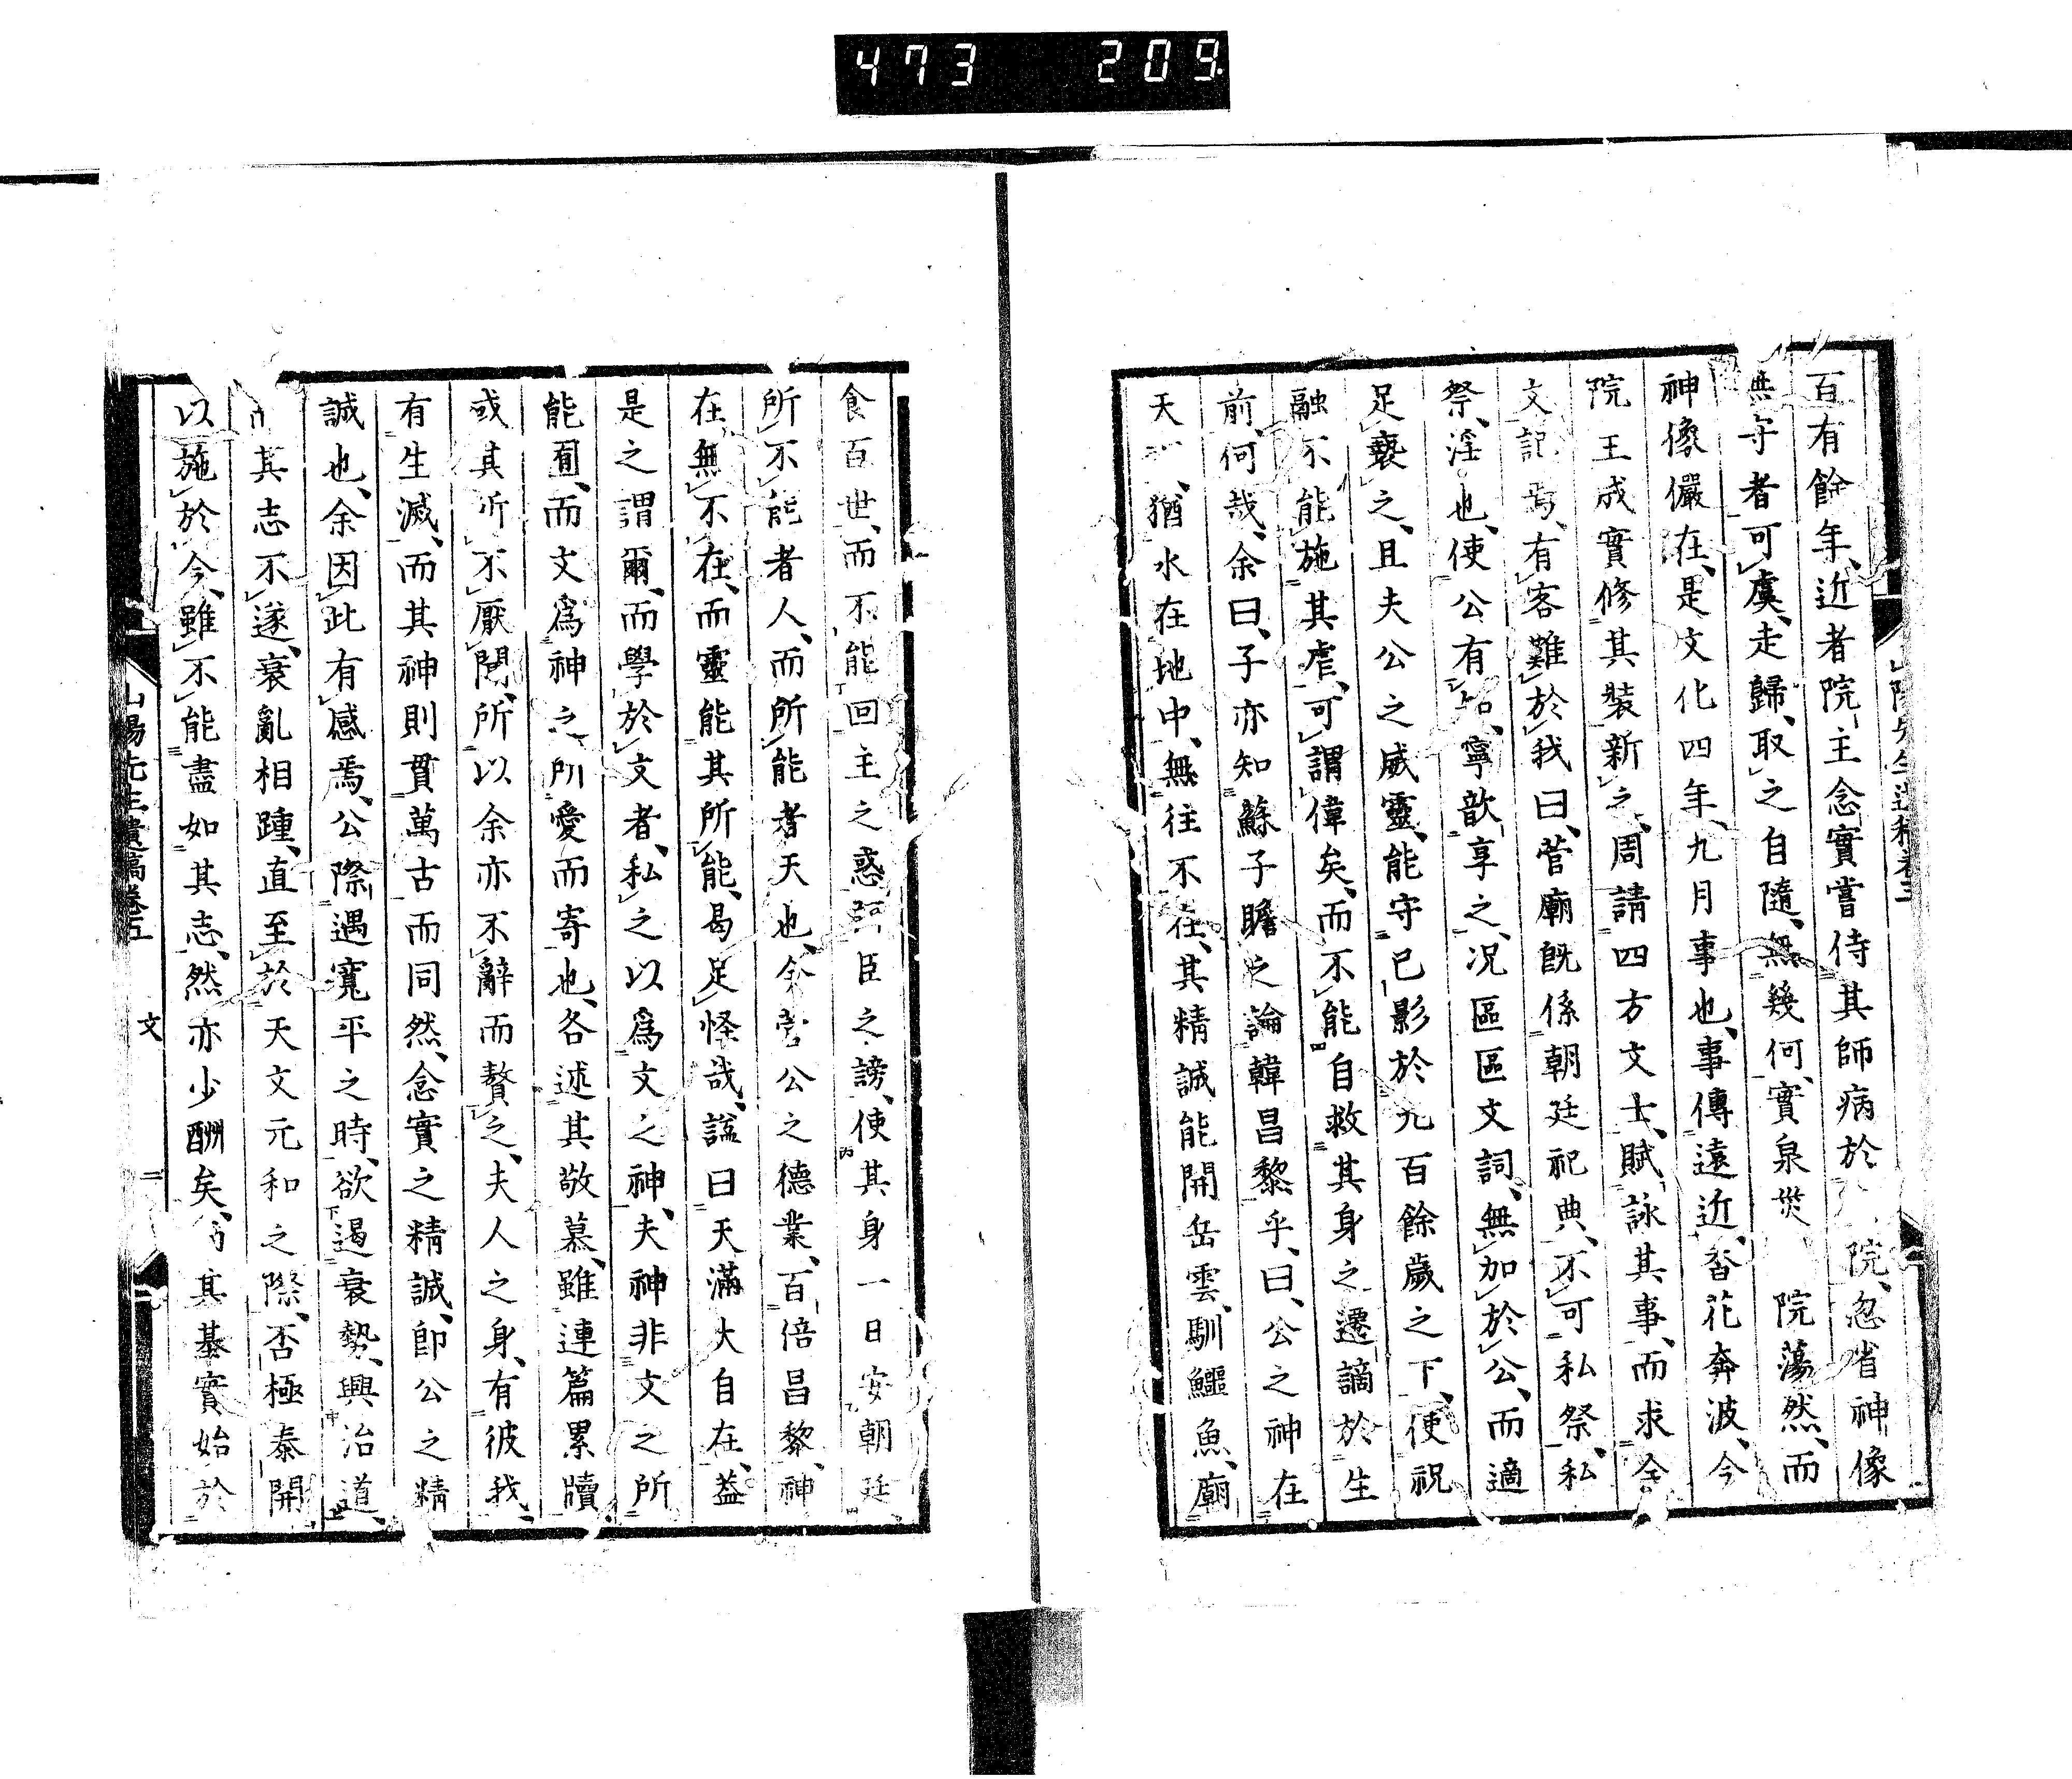 473 209
百有餘年、近者院主念實嘗侍其師病於院、忽省神像
無守者可虞、走歸、取之自隨、無幾何、實泉災院蕩然、而
神像儼在、是文化四年、九月事也、事傳遠近、香花奔波、今
院王成實修其裝新之、周請四方文士、賦詠其事、而求余
文記焉、有客難於我曰、菅廟既係朝廷祀典、不可私祭、私
祭、淫也、使公有、寧歆享之、況區區文詞、無加於公、而適
足褻之、且夫公之威靈、能守己影於九百餘歲之下、使祝
融不能施其虐、可謂偉矣、而不能自救其身之遷謫於生
前、何哉、余曰、子亦知蘇子瞻之論韓昌黎乎、曰、公之神在
天下、猶水在地中、無往不在、其精誠能開岳雲、馴鱷魚、廟
山陽先生遺稿卷三
食百世、而不能回主之惑、臣之謗、使其身一日安朝廷
所不能者人、而所能者天也、今菅公之德業、百倍昌黎、神
在無不在、而靈能其所能、曷足怪哉、謚曰天滿大自在、蓋
是之謂爾、而學於文者、私之以爲文之神、夫神非文之所
能囿、而文爲神之所愛而寄也、各述其敬慕、雖連篇累牘
或其所不厭聞、所以余亦不辭而贅之、夫人之身、有彼我、
有生滅、而其神則貫萬古而同然、念實之精誠、即公之精
誠也、余因此有感焉、公際遇寬平之時、欲遏衰勢、興治道、
其志不遂、衰亂相踵、直至於天文元和之際、否極泰開
以施於今、雖不能盡如其志、然亦少酬矣、其基實始於
山陽先生遺稿卷三 文 二